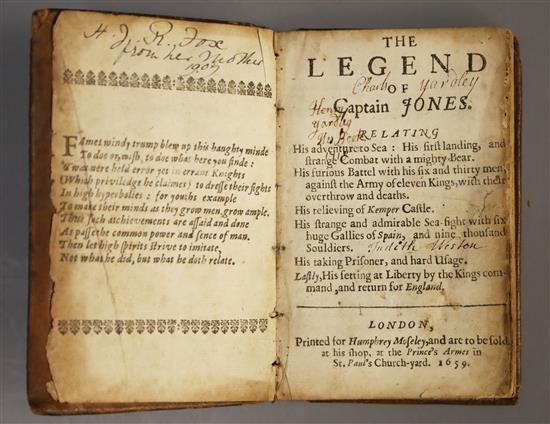 H. J. R. Fox
from her Mother
1907
FAmes windy trump blew up this haughty minde
To doe or wish, to doe what here you finde:
'Twas ne're held error yet in errant Knights
(Which priviledge he claimes) to dresse their fights
In high hyperbolies: for youths example
To make their minds as they grow men, grow ample.
Thus such atchievements are assaid and done
As passe the common power and sence of man.
Then let high spirits strive to imitate,
Not what he did, but what he doth relate.
THE
LEGEND
OF
Charls Yardley
Captain JONES.
Henry
yardly
His Book
RELATING
His adventure to Sea: His first landing, and
strange Combat with a mighty Bear.
His furious Battel with his six and thirty men,
against the Army of eleven Kings, with their
overthrow and deaths.
His relieving of Kemper Castle.
His strange and admirable Sea-fight with six
huge Gallies of Spain, and nine thousand
Souldiers.
Judeth Weston
His taking Prisoner, and hard Usage.
Lastly, His setting at Liberty by the Kings com-
mand, and return for England.
LONDON,
Printed for Humphrey Moseley, and are to be sold
at his shop, at the Prince's Armes in
St. Paul's Church-yard. 1659.